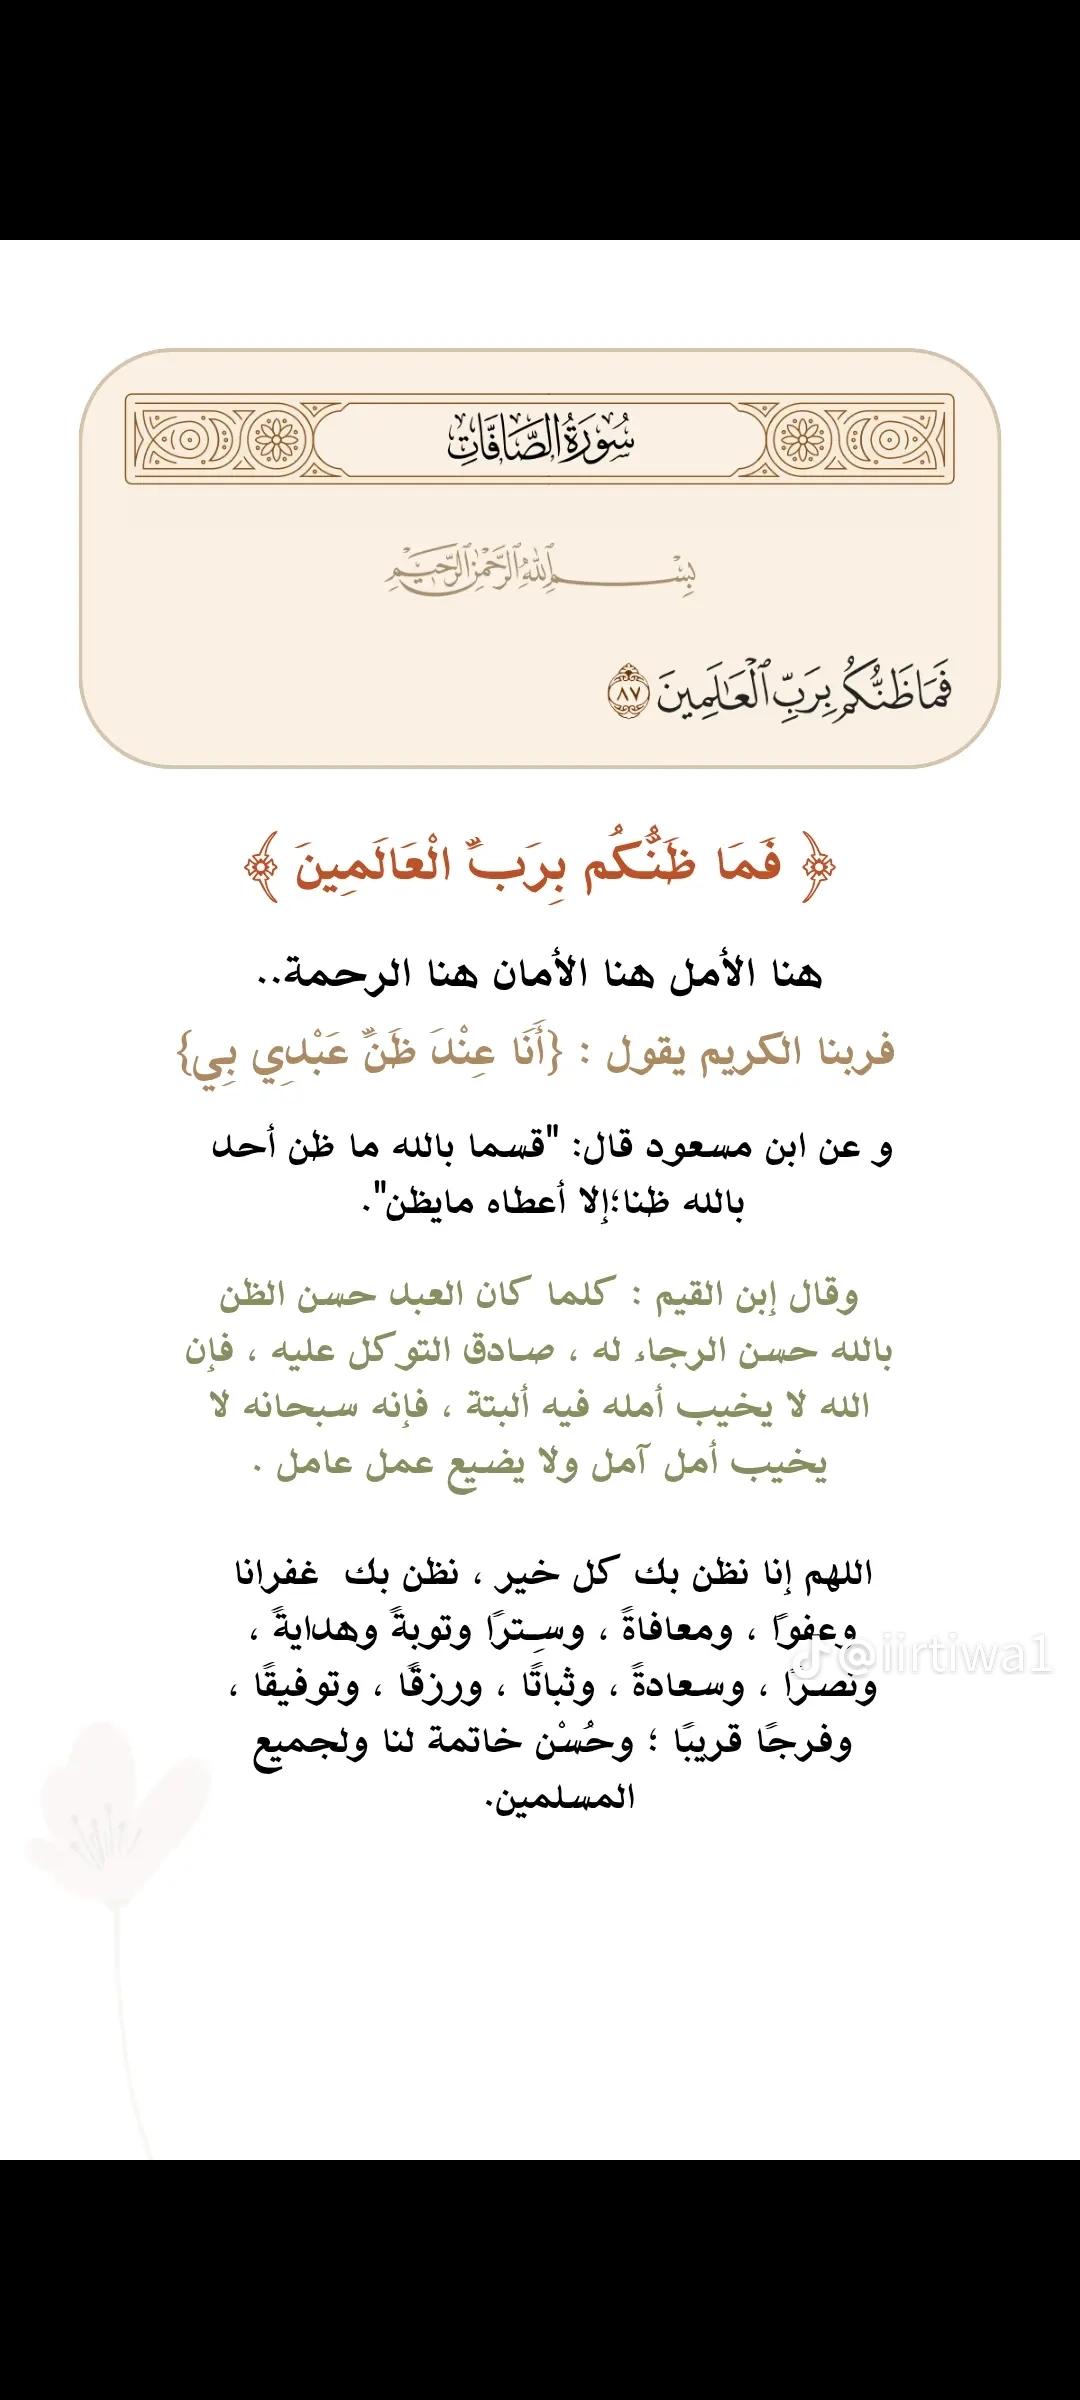 سُورَةُ الصَّافَّاتِ
بِسْمِ ٱللَّهِ ٱلرَّحْمَٰنِ ٱلرَّحِيمِ
فَمَا ظَنُّكُم بِرَبِّ ٱلْعَٰلَمِينَ ٨٧
﴿ فَمَا ظَنُّكُم بِرَبِّ الْعَالَمِينَ ﴾
هنا الأمل هنا الأمان هنا الرحمة..
فربنا الكريم يقول : {أَنَا عِنْدَ ظَنِّ عَبْدِي بِي}
و عن ابن مسعود قال: "قسما بالله ما ظن أحد
بالله ظنا؛إلا أعطاه مايظن".
وقال إبن القيم : كلما كان العبد حسن الظن
بالله حسن الرجاء له ، صادق التوكل عليه ، فإن
الله لا يخيب أمله فيه ألبتة ، فإنه سبحانه لا
يخيب أمل آمل ولا يضيع عمل عامل .
اللهم إنا نظن بك كل خير ، نظن بك غفرانا
وعفوًا ، ومعافاةً ، وسِترًا وتوبةً وهدايةً ،
@iirtiwa1
ونصرًا ، وسعادةً ، وثباتًا ، ورزقًا ، وتوفيقًا ،
وفرجًا قريبًا ؛ وحُسْن خاتمة لنا ولجميع
المسلمين.